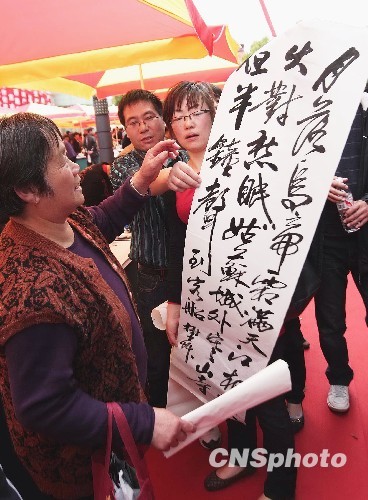 月落烏啼霜滿天江
火對愁眠姑蘇城外寒山寺
夜半鐘聲到客船
CNSphoto